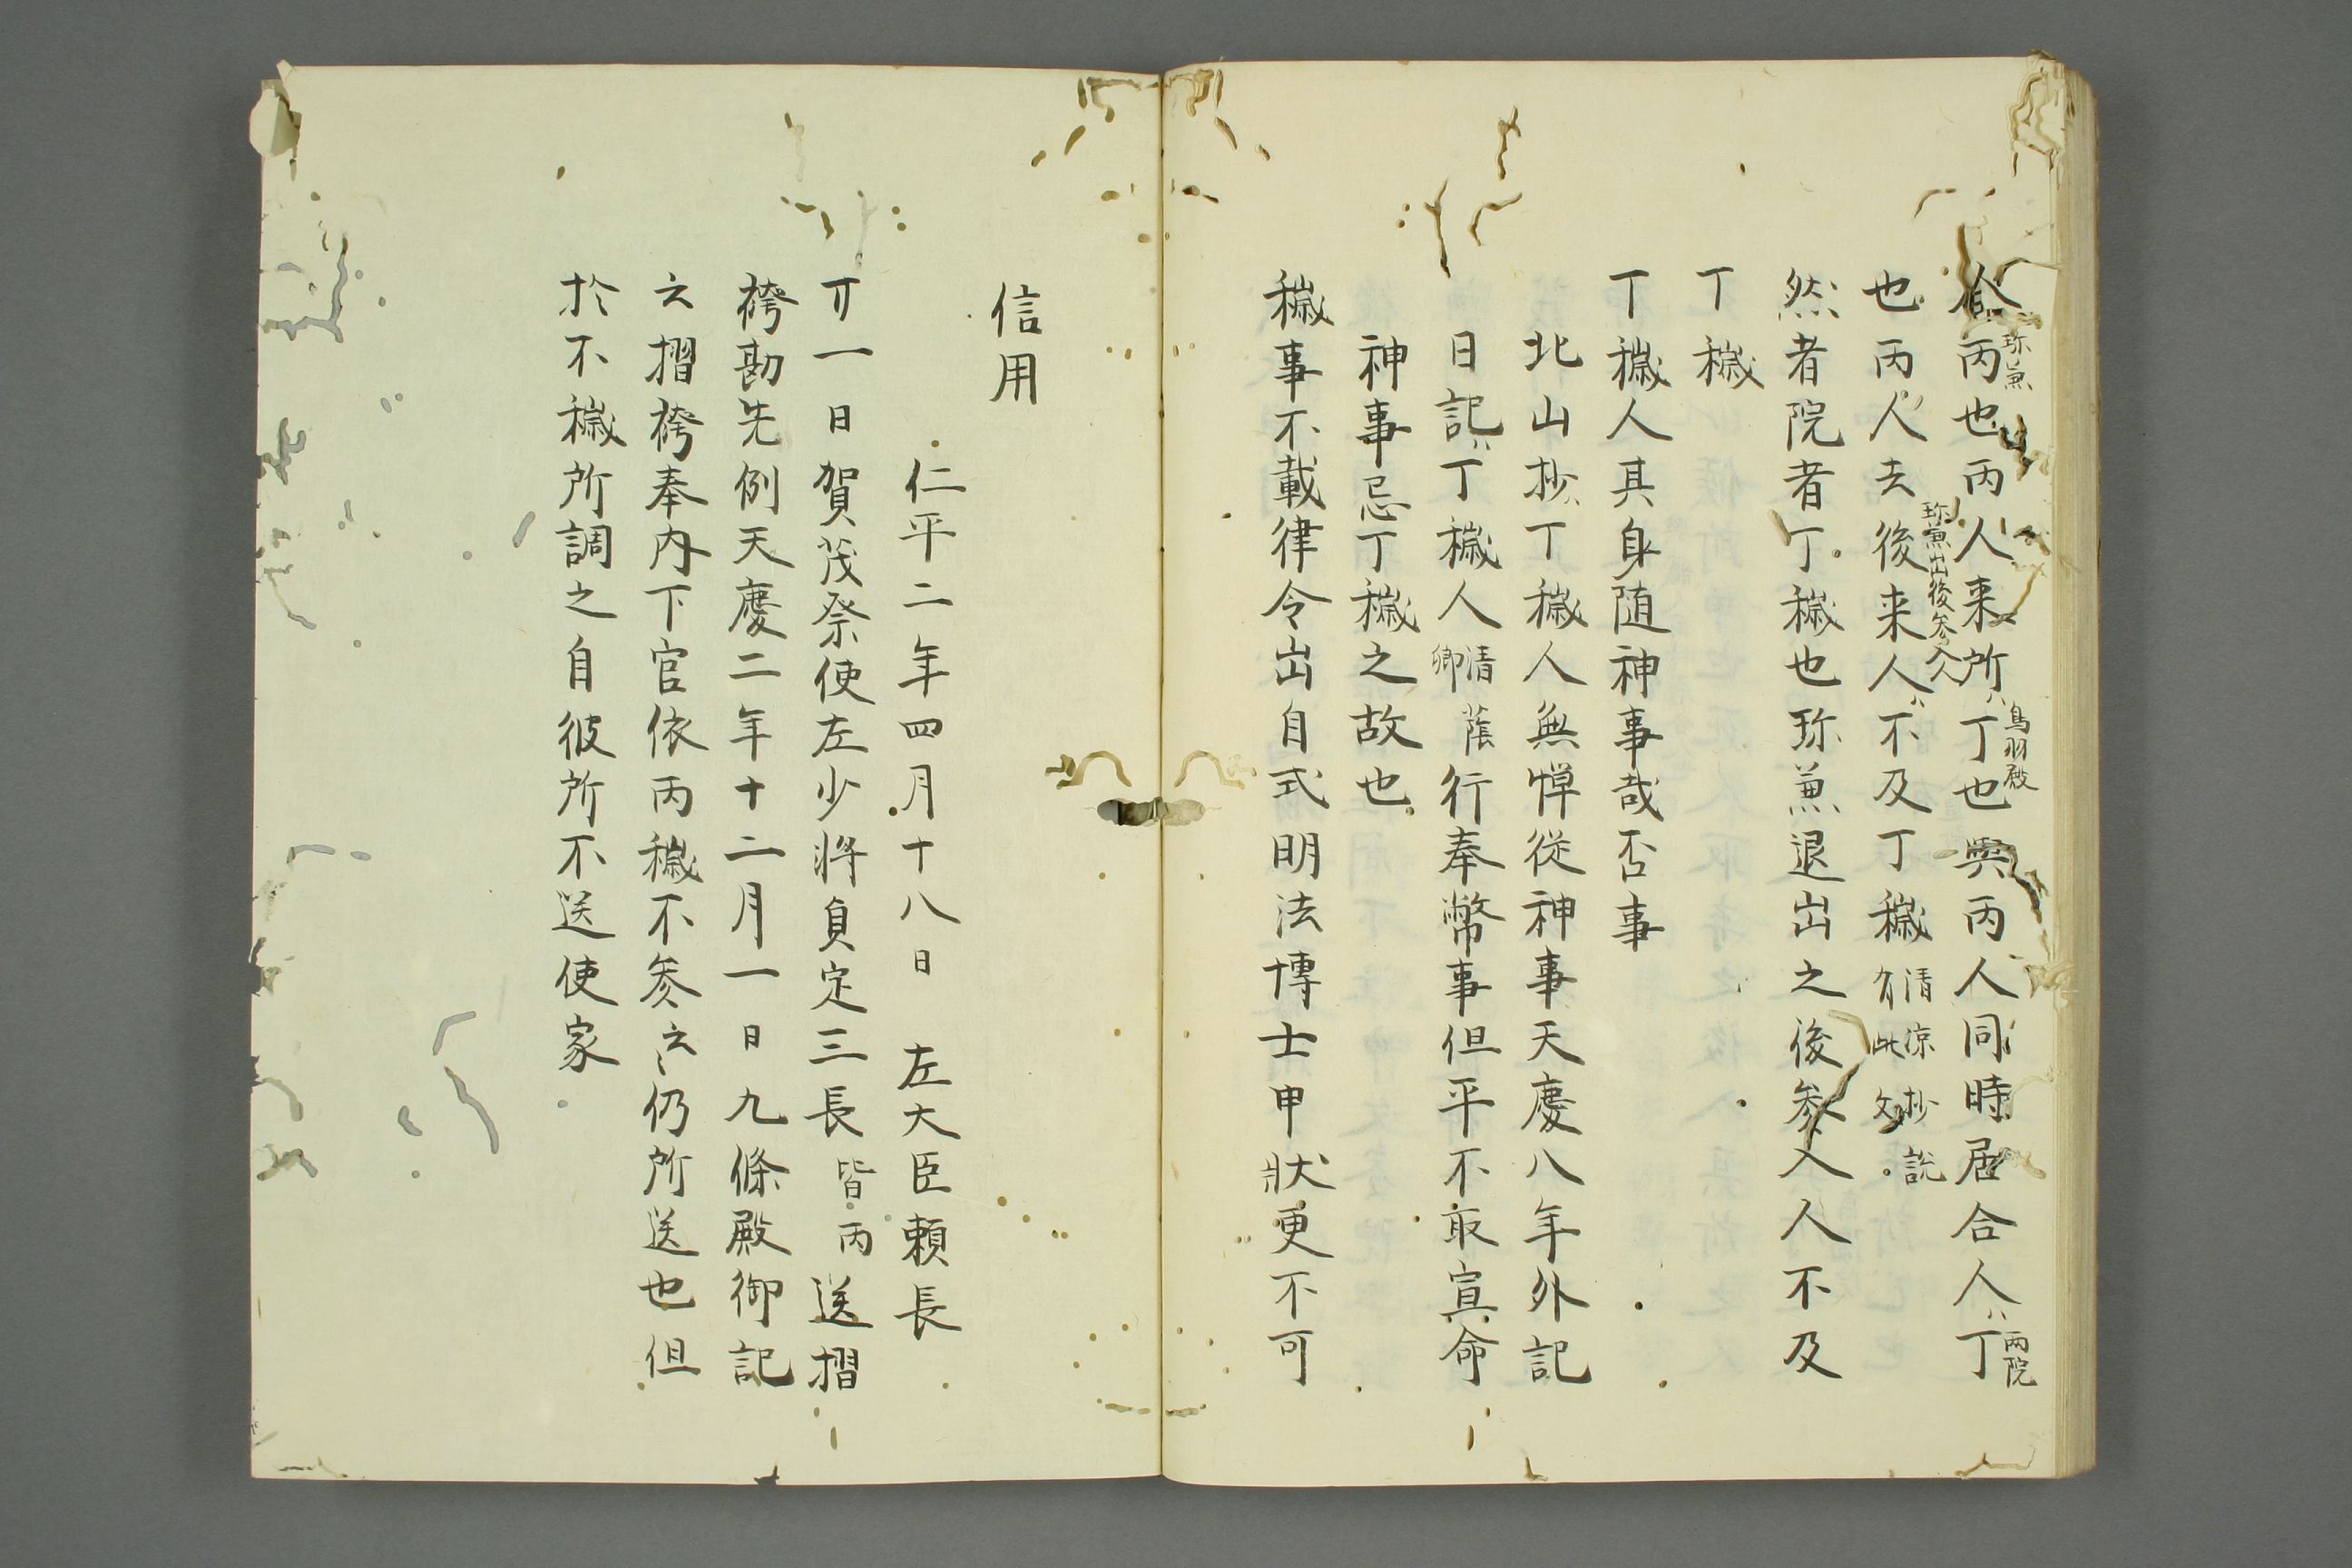 丙也丙人来所ハ丁也與丙人同時居合人ハ丁
珎兼
鳥羽殿
両院
也丙人去後来人ハ不及丁穢清涼抄說有此文
珎兼出後参入人
然者院者丁穢也珎兼退出之後参入人不及
丁穢
丁穢人其身随神事哉否事
北山抄丁穢人無憚従神事天慶八年外記
日記丁穢人清蔭卿行奉幣事但平不取宣命
神事忌丁穢之故也
穢事不載律令出自式明法博士申狀更不可
信用
仁平二年四月十八日 左大臣頼長
廾一日賀茂祭使左少将負定三長皆丙送摺
袴勘先例天慶二年十二月一日九條殿御記
云摺袴奉内下官依丙穢不参云〻仍所送也但
於不穢所調之自彼所不送使家